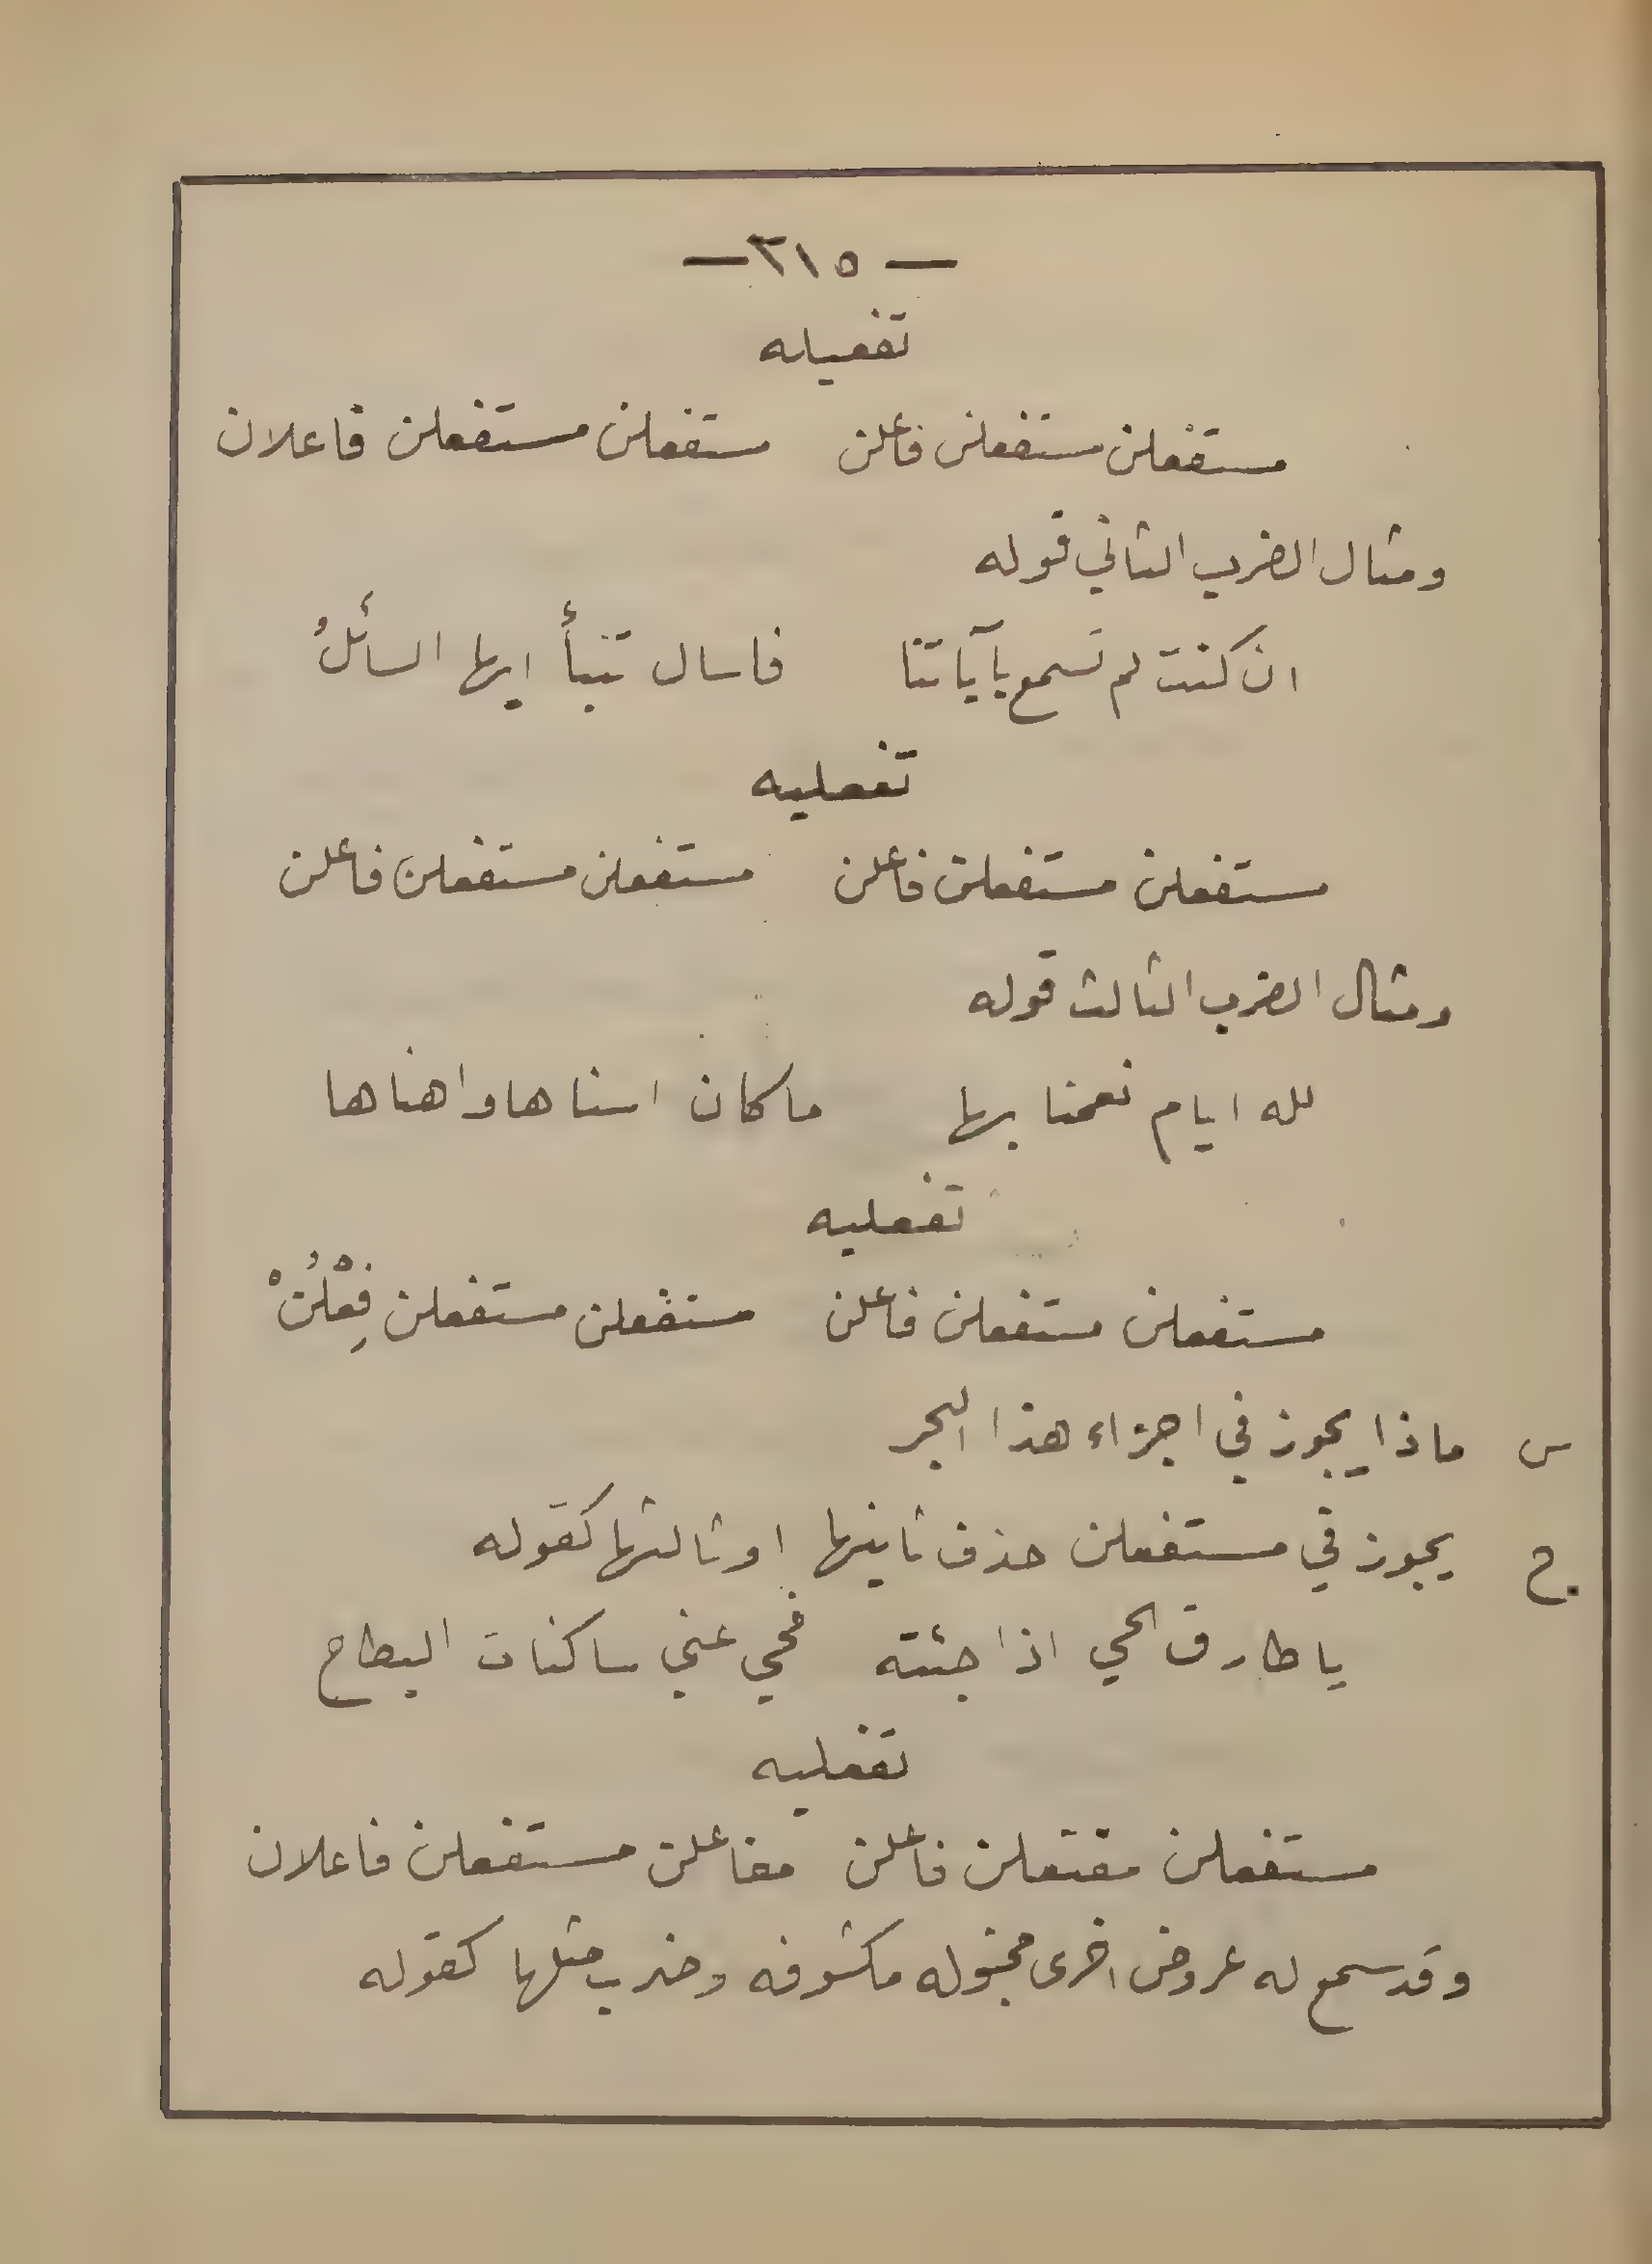 — ٣١٥ —
تفعيله
مستفعلن مستفعلن فاعلن مستفعلن مستفعلن فاعلان
ومثال الضرب الثاني قوله
ان كنت لم تسمع بآياتنا فاسال تنبأ ايها السائلُ
تفعليه
مستفعلن مستفعلن فاعلن مستفعلن مستفعلن فاعلن
ومثال الضرب الثالث قوله
لله ايام نعمنا بها ما كان اسناها واهناها
تفعليه
مستفعلن مستفعلن فاعلن مستفعلن مستفعلن فِعْلُنْ
س ماذا يجوز في اجزاء هذا البحر
ج يجوز في مستفعلن حذف ثانيها او ثالثها كقوله
يا طارق الحي اذا جئته فحي عني ساكنات البطاح
تفعليه
مستفعلن مفتعلن فاعلن مفاعلن مستفعلن فاعلان
وقد سمع له عروض اخرى مخبوله مكشوفه وضرب مثلها كقوله